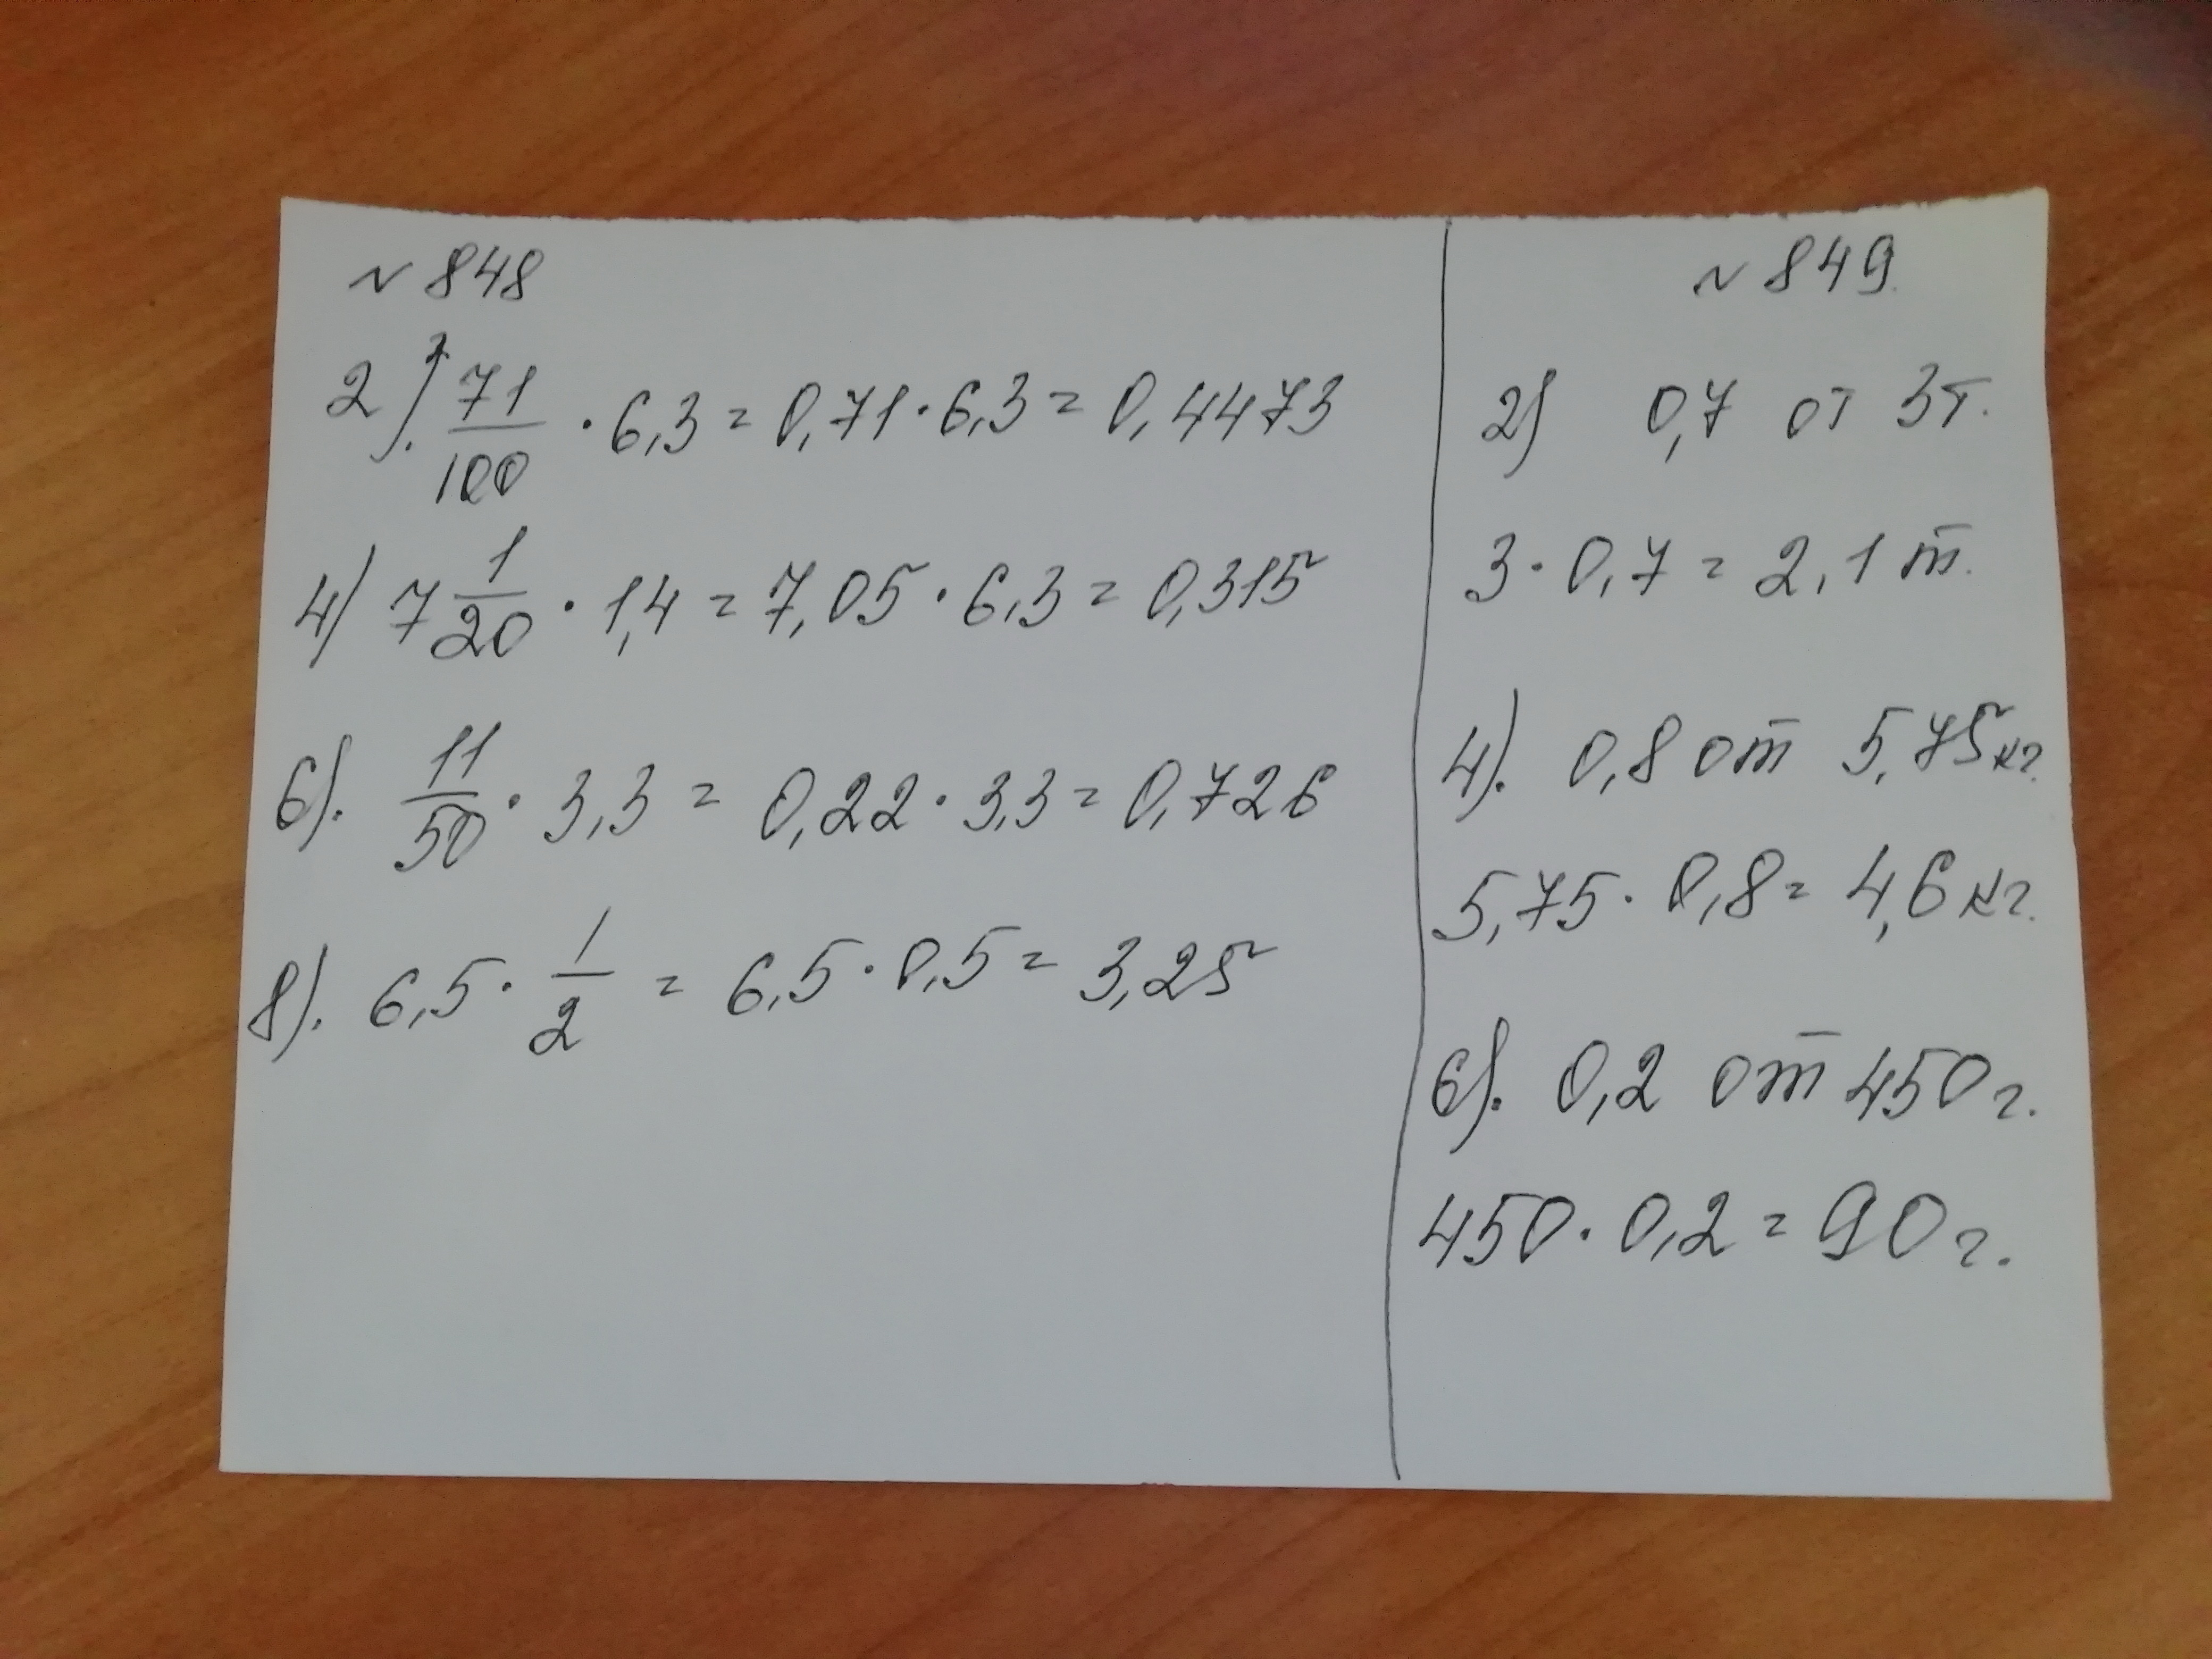 № 848
2). 71/100 · 6,3 = 0,71 · 6,3 = 0,4473
4) 7 1/20 · 1,4 = 7,05 · 6,3 = 0,315
6). 11/50 · 3,3 = 0,22 · 3,3 = 0,726
8). 6,5 · 1/2 = 6,5 · 0,5 = 3,25
№ 849.
2) 0,7 от 3т.
3 · 0,7 = 2,1 т.
4). 0,8 от 5,75 кг.
5,75 · 0,8 = 4,6 кг.
6). 0,2 от 450 г.
450 · 0,2 = 90 г.